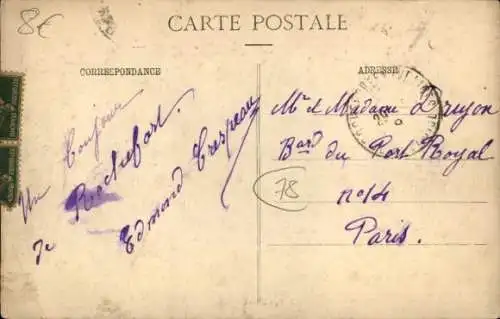 8€
CARTE POSTALE
CORRESPONDANCE
ADRESSE
Un Bonjour
de Rochefort.
Edmond Crespeau
Mr et Madame Druyon
Bard du Port Royal
n° 14
Paris.
78